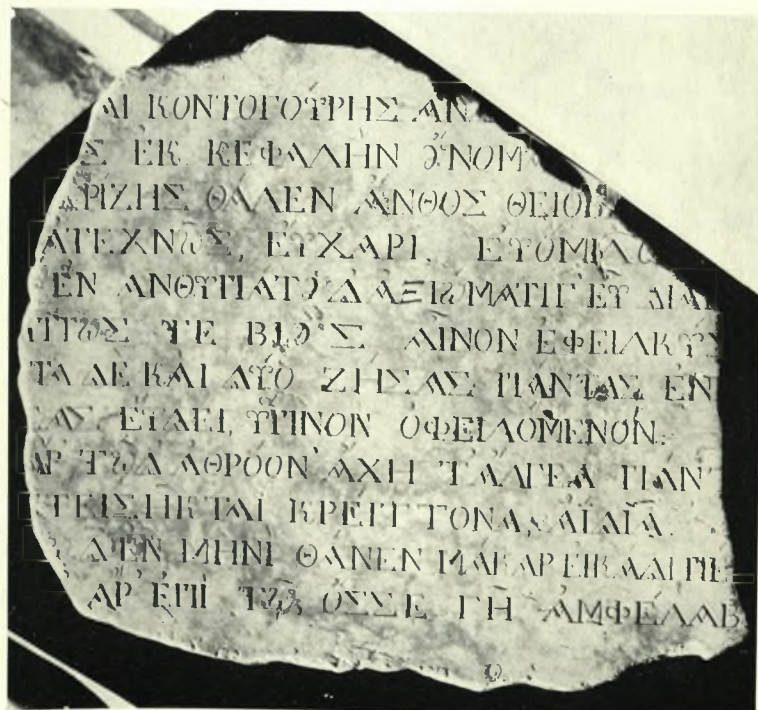 ΑΙ ΚΟΝΤΟΓΟΥΡΗΣ ΑΝ
Σ ἘΚ ΚΕΦΑΛΗΝ ὌΝΟΜ
ΡΙΖΗΣ ΘΑΛΕΝ ΑΝΘΟΣ ΘΕΙΟ
ΑΤΕΧΝΩΣ, ΕΥΧΑΡΙ, ΕΥΟΜΙΛΟ
ΕΝ ΑΝΘΥΠΑΤΟΥΔ ΑΞΙΩΜΑΤΙΓ ΕΥ
ΠΩΣ ΤΕ ΒΙΟΣ ΑΙΝΟΝ ΕΦΕΙΛΚΥΣ
ΤΑ ΔΕ ΚΑΙ ΔΥΟ ΖΗΣΑΣ ΠΑΝΤΑΣ ΕΝ
ΣΑΣ ΕΥΔΕΙ, ΥΠΝΟΝ ΟΦΕΙΛΟΜΕΝΟΝ.
ΑΡ ΤΩΔ ΑΘΡΟΟΝ ΑΧΗ Τ ΑΛΓΕΑ ΠΑΝΤ
ΚΡΕΙΤΤΟΝΑ,
Δ ΕΝ ΜΗΝΙ ΘΑΝΕΝ ΜΑΚΑΡ ΕΙΚΑΔΙ ΠΕ
ΑΡ ἘΠΙ ΤΩ ΟΣΣΕ ΓΗ ΑΜΦΕΛΑΒ